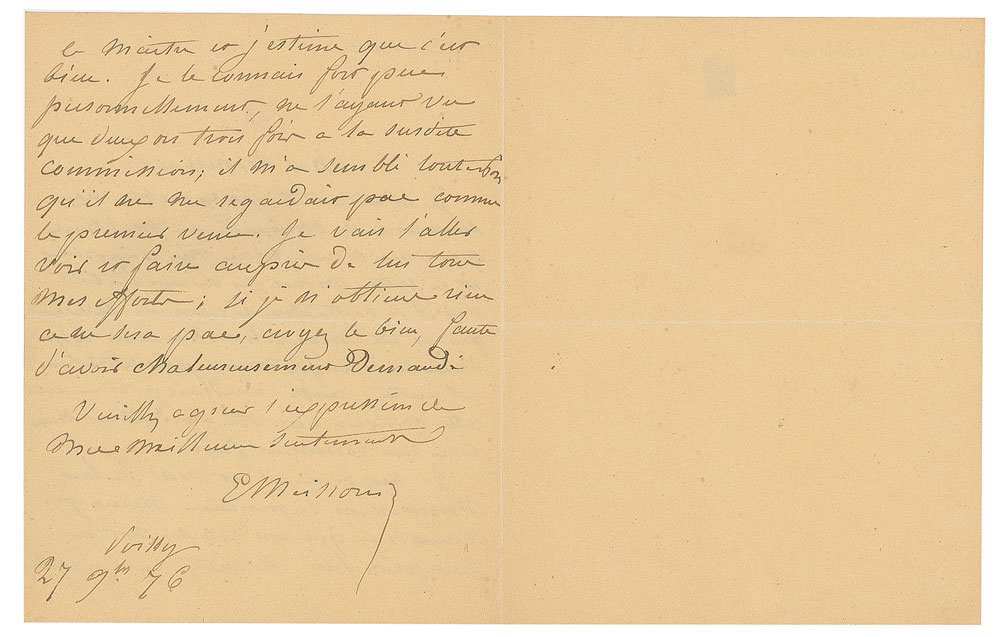 le maître et j'estime que c'est
bien. Je le connais fort peu
personnellement, ne l'ayant vu
que deux ou trois fois a la susdite
commission; il m'a semblé toutefois
qu'il ne me regardait pas comme
le premier venu. Je vais l'aller
voir et faire auprès de lui tous
mes efforts; si je n'obtiens rien
ce ne sera pas, croyez le bien, faute
d'avoir chaleureusement demandé
Veuillez agréer l'expression de
mes meilleurs sentiments
EMeissonier
Poissy
27 9bre 76